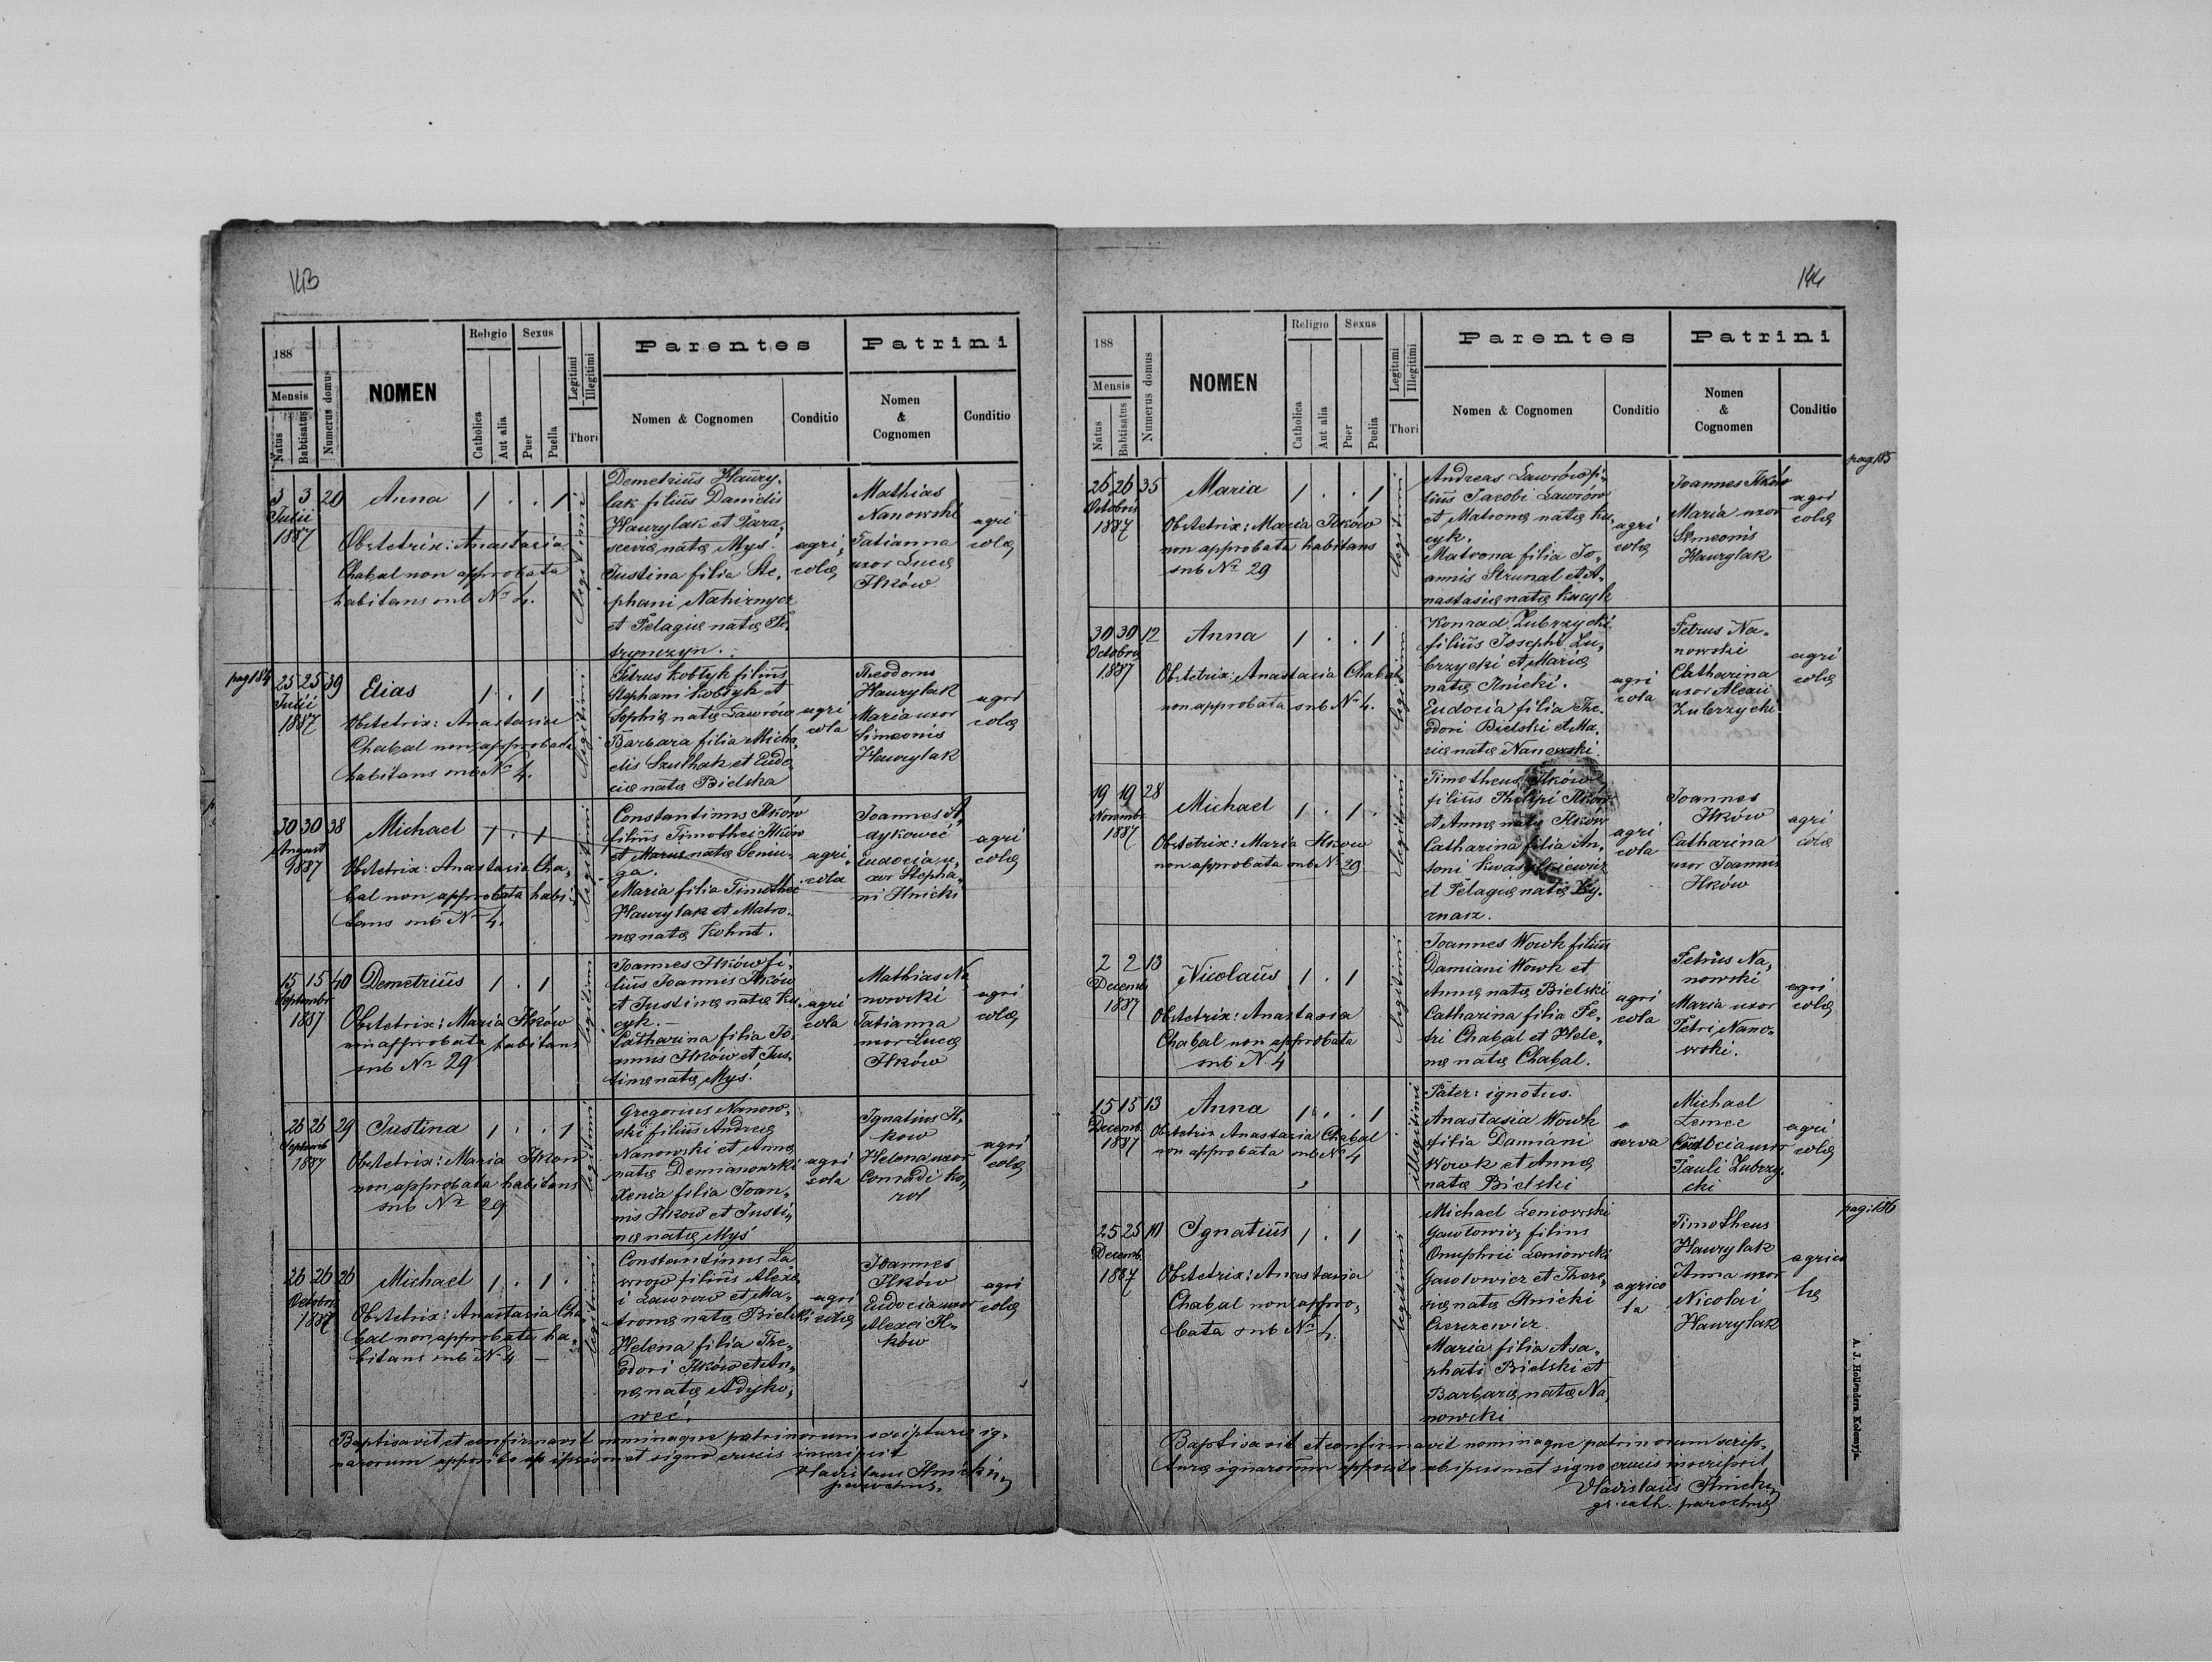 143
188
Mensis
Natus
Babtisatus
Numerus domus
NOMEN
Religio
Catholica
Aut alia
Sexus
Puer
Puella
Legitimi
Illegitimi
Thori
Parentes
Nomen & Cognomen
Conditio
Patrini
Nomen
&
Cognomen
Conditio
3 3 20 Anna 1 . . 1
Julii
1887
Obstetrix: Anastasia
Chabal non approbata
habitans sub Nr 4.
legitimi
Demetrius Hawry-
lak filius Danielis
Hawrylak et Para-
sceviæ natæ Myś.
Justina filia Ste-
phani Nahirnycz
et Pelagiæ natæ Pe-
trynczyn.
agri-
colæ
Mathias
Nanowski
Tatianna
uxor Lucæ
Ilków
agri
colæ
pag 184
25 25 39 Elias 1 . 1
Julii
1887
Obstetrix: Anastasia
Chabal non approbata
habitans sub Nr 4.
legitimi
Petrus Kobłyk filius
Stephani Kobłyk et
Sophiæ natæ Lawrów
Barbara filia Micha-
elis Szulhak et Eudo-
ciæ natæ Bielska
agri
cola
Theodorus
Hawrylak
Maria uxor
Simeonis
Hawrylak
agri
colæ
30 30 38 Michael 1 . 1
August
1887
Obstetrix: Anastasia Cha-
bal non approbata habi-
tans sub Nr 4.
legitimi
Constantinus Ilków
filius Timothei Ilków
et Mariæ natæ Seniu-
ga.
Maria filia Timothei
Hawrylak et Matro-
næ natæ Kohut.
agri-
cola
Joannes A-
dykoweć
Eudocia u-
xor Stepha-
ni Ilnicki
agri
colæ
15 15 40 Demetrius 1 . 1
Septembr
1887
Obstetrix: Maria Ilków
non approbata habitans
sub Nr 29
legitimi
Joannes Ilków fi-
lius Joannis Ilków
et Justinæ natæ Ku-
cyk.
Catharina filia Jo-
annis Ilków et Jus-
tinæ natæ Myś.
agri
cola
Mathias Na
nowski
Tatianna
uxor Lucæ
Ilków
agri
colæ
26 26 29 Justina 1 . . 1
Septemb
1887
Obstetrix: Maria Ilkow
non approbata habitans
sub Nr 29
legitimi
Gregorius Nanow-
ski filius Andreæ
Nanowski et Annæ
natæ Demianowski
Xenia filia Joan-
nis Ilkow et Justi-
næ natæ Myś
agri
cola
Ignatius Il-
kow
Helena uxor
Conradi Ko-
rol
agri
colæ
26 26 26 Michael 1 . 1 .
Octobr
1887
Obstetrix: Anastasia Cha-
bal non approbata ha-
bitans sub Nr 4
legitimi
Constantinus La-
wrow filius Alexe
i Lawrow et Ma-
tronæ natæ Bielski
Helena filia The-
odori Ilków et An-
næ natæ Adyko-
weć.
agri
colæ
Joannes
Ilków
Eudocia uxor
Alexei Il-
ków
agri
colæ
Baptisavit et confirmavit nominaque patrinorum scripturæ ig-
narorum apposito ab ipsismet signo crucis inscripsit
Vladislaus Ilnicki
parochus.
144
188
Mensis
Natus
Babtisatus
Numerus domus
NOMEN
Religio
Catholica
Aut alia
Sexus
Puer
Puella
Legitimi
Illegitimi
Thori
Parentes
Nomen & Cognomen
Conditio
Patrini
Nomen
&
Cognomen
Conditio
pag 185
26 26 35 Maria 1 . . 1
Octobris
1887
Obstetrix: Maria Ilków
non approbata habitans
sub Nr 29
legitimi
Andreas Lawrów fi-
lius Jacobi Lawrów
et Matronæ natæ Ku-
cyk.
Matrona filia Jo-
annis Strunal et A-
nastasiæ natæ Kucyk
agri
colæ
Joannes Ilków
Maria uxor
Simeonis
Hawrylak
agri
colæ
30 30 12 Anna 1 . . 1
Octobris
1887
Obstetrix: Anastasia Chabal
non approbata sub Nr 4.
legitimi
Konrad Zubrzycki
filius Josephi Zu-
brzycki et Mariæ
natæ Ilnicki.
Eudocia filia The-
odori Bielski et Ma-
riæ natæ Nanowski.
agri
cola
Petrus Na-
nowski
Catharina
uxor Alexii
Zubrzycki
agri
colæ
19 19 28 Michael 1 . 1 .
Novemb
1887
Obstetrix: Maria Ilkow
non approbata sub Nr 29
legitimi
Timotheus Ilków
filius Philipi Ilków
et Annæ natæ Ilków
Catharina filia An-
toni Kwasylkiewicz
et Pelagiæ natæ Ky-
rnasz.
agri
cola
Joannes
Ilków
Catharina
uxor Joannis
Ilków
agri
colæ
2 2 13 Nicolaus 1 . 1
Decemb
1887
Obstetrix: Anastasia
Chabal non approbata
sub N 4
legitimi
Joannes Wowk filius
Damiani Wowk et
Annæ natæ Bielski
Catharina filia Pe-
tri Chabal et Hele-
næ natæ Chabal.
agri
cola
Petrus Na-
nowski
Maria uxor
Petri Nano-
wski.
agri
colæ
15 15 13 Anna 1 . . 1
Decemb
1887
Obstetrix Anastasia Chabal
non approbata sub Nr 4
illegitimi
Pater: ignotus.
Anastasia Wowk
filia Damiani
Wowk et Annæ
natæ Bielski
serva
Michael
Eudocia uxor
Pauli Zubrzy-
cki
agri
colæ
pag: 186
25 25 10 Ignatius 1 . 1
Decemb
1887
Obstetrix: Anastasia
Chabal non appro-
bata sub Nr 4.
legitimi
Michael Leniowski
Gawłowicz filius
Onuphrii Leniowski
Gawłowicz et There-
siæ natæ Ilnicki
Czerczewicz.
Maria filia Asa-
phati Bielski et
Barbaræ natæ Na
nowski
agrico
la
Timotheus
Hawrylak
Anna uxor
Nicolai
Hawrylak
agrico
læ
Baptisavit et confirmavit nominaque patrinorum scrip-
turæ ignarorum apposito ab ipsismet signo crucis inscripsit
Vladislaus Ilnicki
gr. cath. parochus
A. J. Hollendera Kołomyja